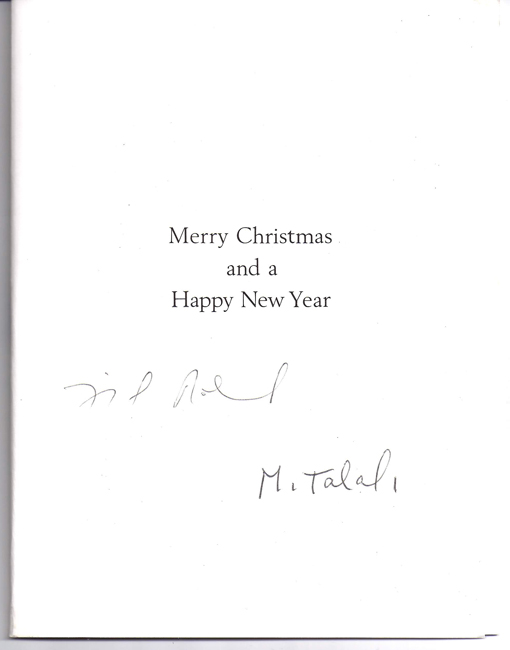 Merry Christmas
and a
Happy New Year
M. Talal